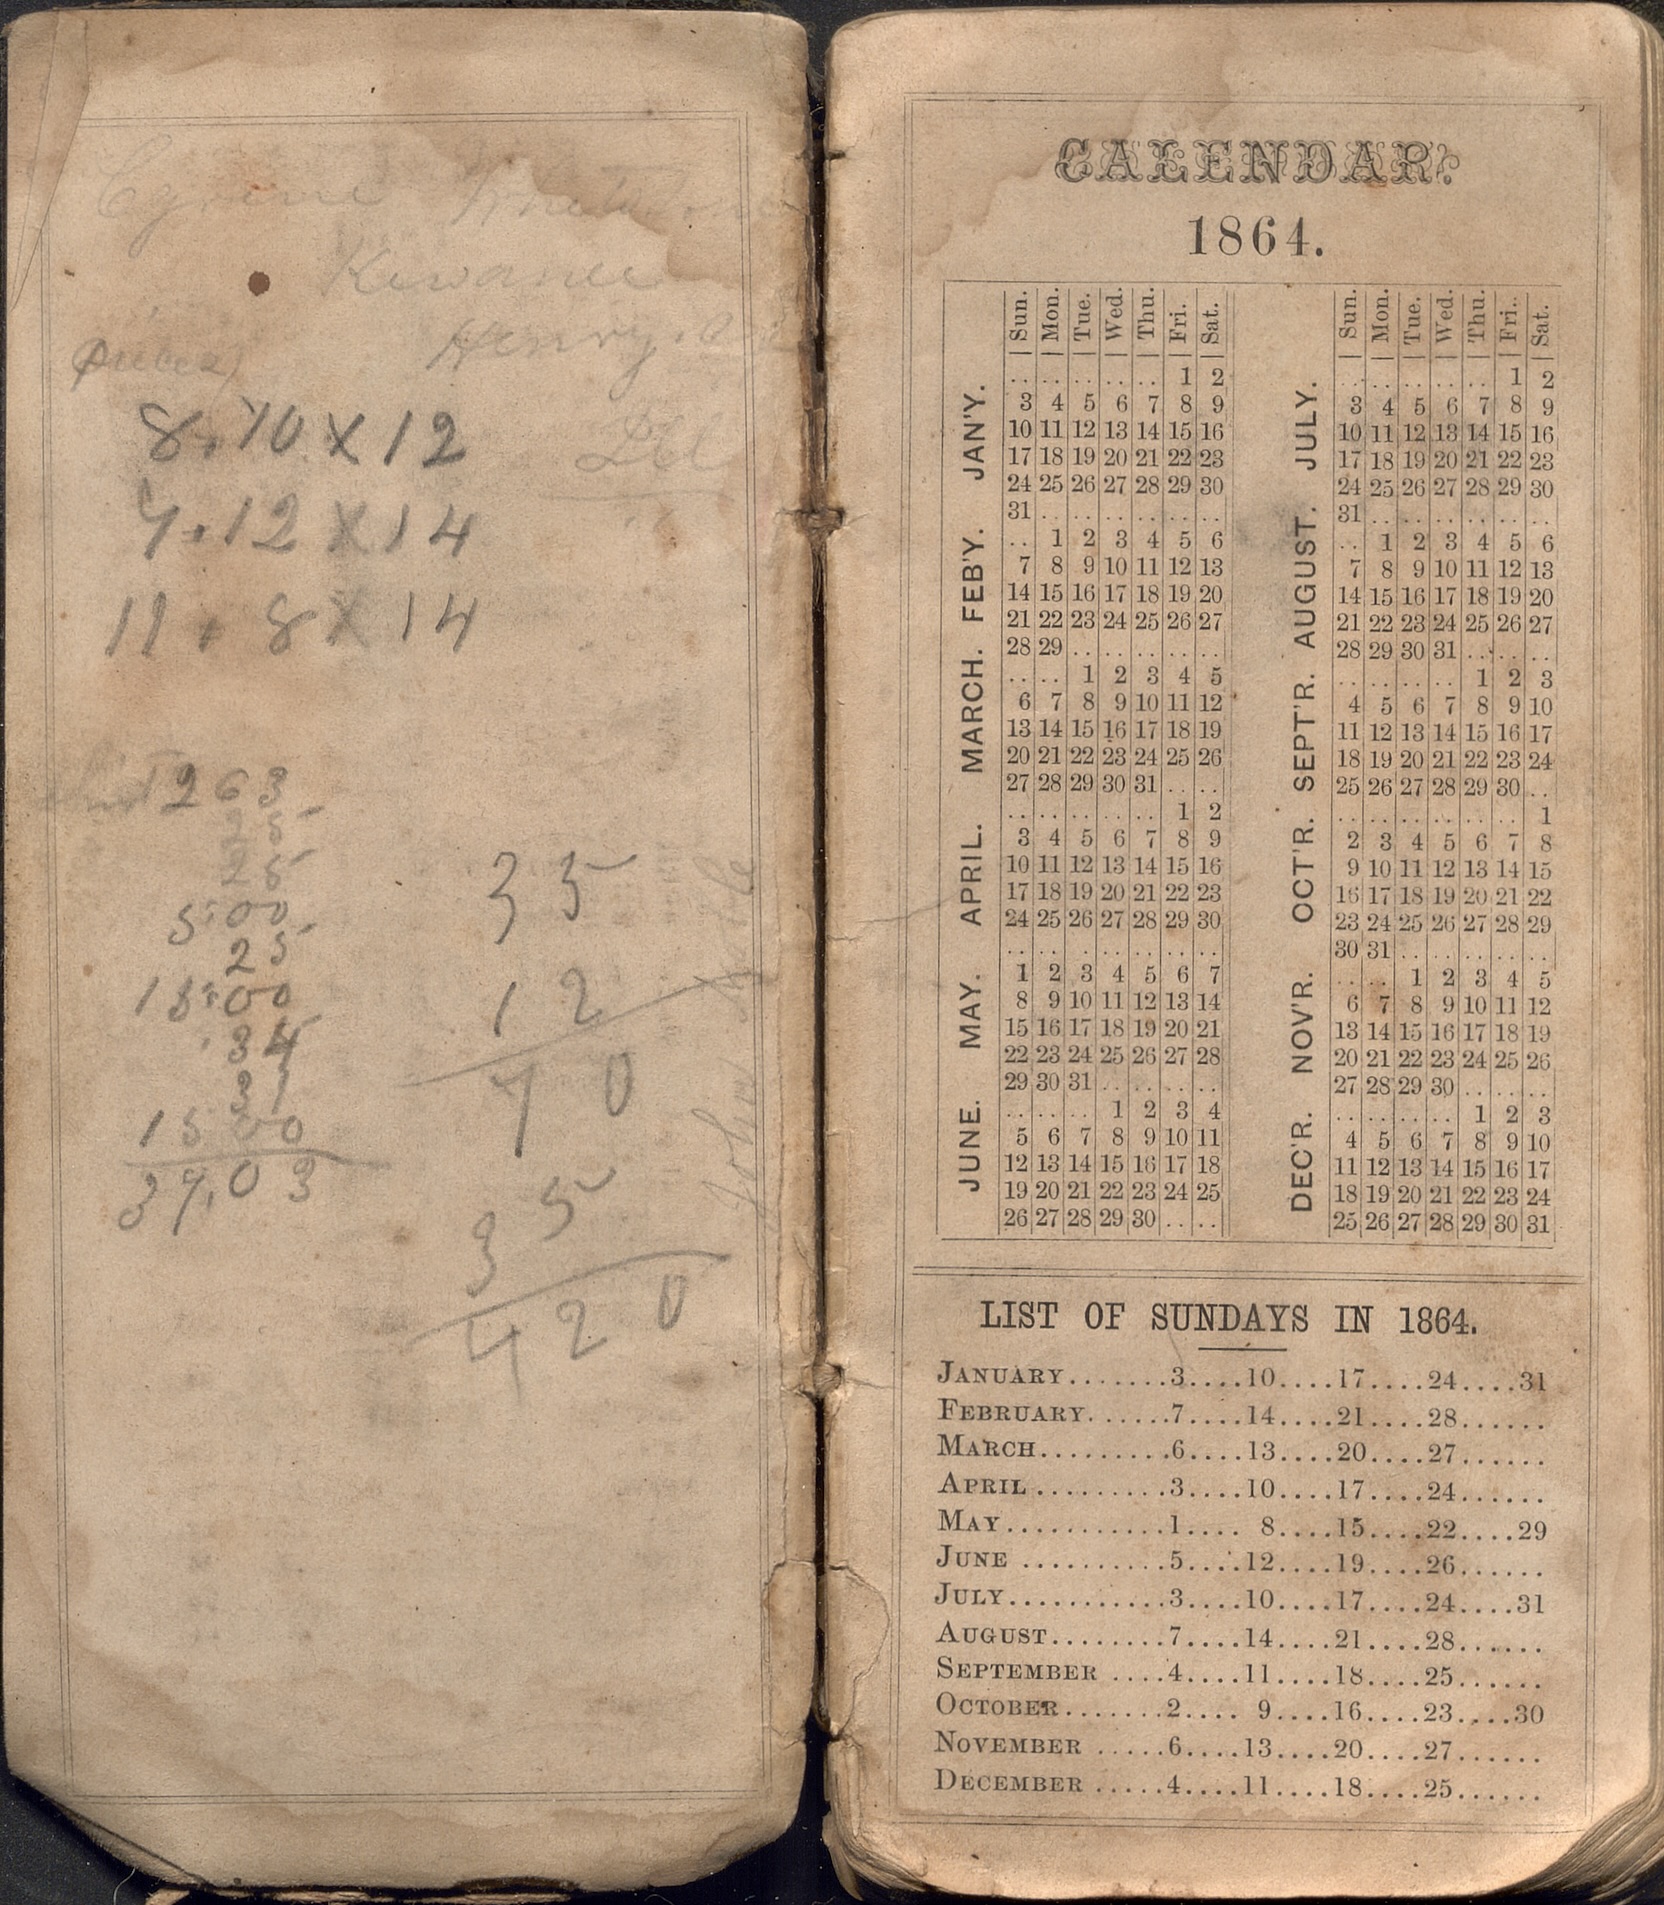 Kewanee
Henry
8, 10 X 12
7, 12 X 14
11, 8 X 14
263
25
25
5,00
25
15,00
34
31
15 00
39,03
35
12
70
35
420
CALENDAR.
1864.
Sun. Mon. Tue. Wed. Thu. Fri. Sat.
JAN'Y.
.. .. .. .. .. 1 2
3 4 5 6 7 8 9
10 11 12 13 14 15 16
17 18 19 20 21 22 23
24 25 26 27 28 29 30
31 .. .. .. .. .. ..
FEB'Y.
.. 1 2 3 4 5 6
7 8 9 10 11 12 13
14 15 16 17 18 19 20
21 22 23 24 25 26 27
28 29 .. .. .. .. ..
MARCH.
.. .. 1 2 3 4 5
6 7 8 9 10 11 12
13 14 15 16 17 18 19
20 21 22 23 24 25 26
27 28 29 30 31 .. ..
APRIL.
.. .. .. .. .. 1 2
3 4 5 6 7 8 9
10 11 12 13 14 15 16
17 18 19 20 21 22 23
24 25 26 27 28 29 30
.. .. .. .. .. .. ..
MAY.
1 2 3 4 5 6 7
8 9 10 11 12 13 14
15 16 17 18 19 20 21
22 23 24 25 26 27 28
29 30 31 .. .. .. ..
JUNE.
.. .. .. 1 2 3 4
5 6 7 8 9 10 11
12 13 14 15 16 17 18
19 20 21 22 23 24 25
26 27 28 29 30 .. ..
Sun. Mon. Tue. Wed. Thu. Fri. Sat.
JULY.
.. .. .. .. .. 1 2
3 4 5 6 7 8 9
10 11 12 13 14 15 16
17 18 19 20 21 22 23
24 25 26 27 28 29 30
31 .. .. .. .. .. ..
AUGUST.
.. 1 2 3 4 5 6
7 8 9 10 11 12 13
14 15 16 17 18 19 20
21 22 23 24 25 26 27
28 29 30 31 .. .. ..
SEPT'R.
.. .. .. .. 1 2 3
4 5 6 7 8 9 10
11 12 13 14 15 16 17
18 19 20 21 22 23 24
25 26 27 28 29 30 ..
OCT'R.
.. .. .. .. .. .. 1
2 3 4 5 6 7 8
9 10 11 12 13 14 15
16 17 18 19 20 21 22
23 24 25 26 27 28 29
30 31 .. .. .. .. ..
NOV'R.
.. .. 1 2 3 4 5
6 7 8 9 10 11 12
13 14 15 16 17 18 19
20 21 22 23 24 25 26
27 28 29 30 .. .. ..
DEC'R.
.. .. .. .. 1 2 3
4 5 6 7 8 9 10
11 12 13 14 15 16 17
18 19 20 21 22 23 24
25 26 27 28 29 30 31
LIST OF SUNDAYS IN 1864.
JANUARY.......3....10....17....24....31
FEBRUARY......7....14....21....28......
MARCH.........6....13....20....27......
APRIL.........3....10....17....24......
MAY...........1.... 8....15....22....29
JUNE..........5....12....19....26......
JULY..........3....10....17....24....31
AUGUST........7....14....21....28......
SEPTEMBER ....4....11....18....25......
OCTOBER.......2.... 9....16....23....30
NOVEMBER .....6....13....20....27......
DECEMBER .....4....11....18....25......